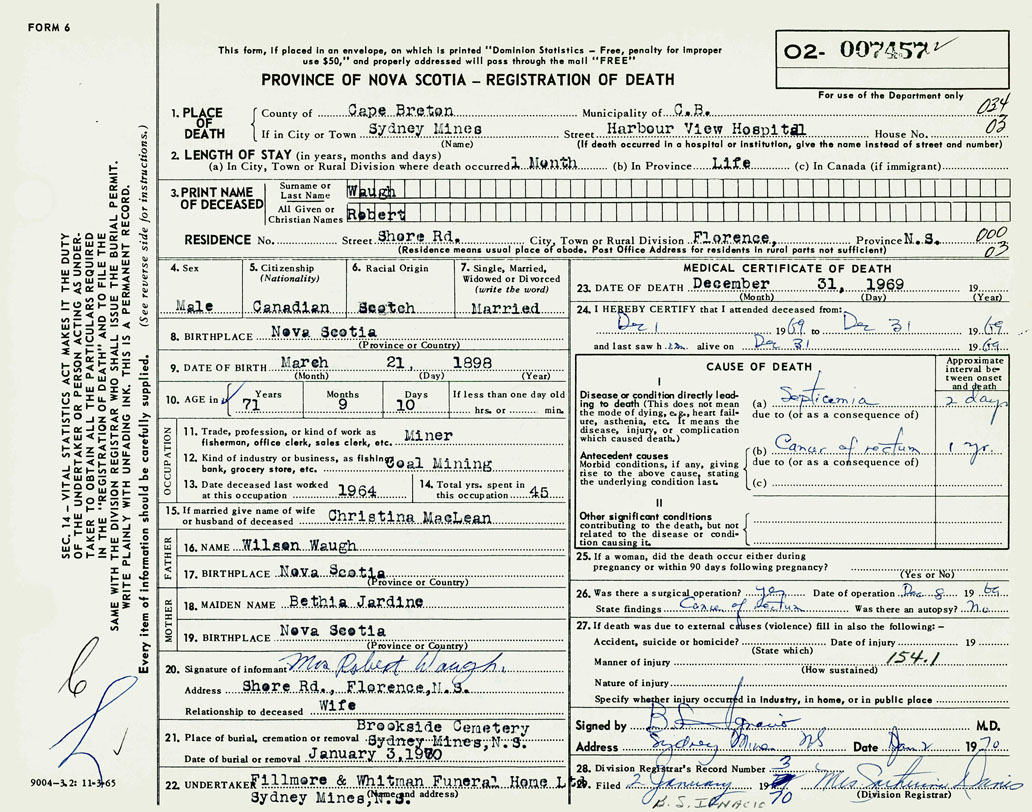 FORM 6
This form, if placed in an envelope, on which is printed "Dominion Statistics – Free, penalty for improper
use $50," and properly addressed will pass through the mail "FREE"
PROVINCE OF NOVA SCOTIA – REGISTRATION OF DEATH
O2- 007457
For use of the Department only
1. PLACE OF DEATH
County of Cape Breton Municipality of C.B. 034
If in City or Town Sydney Mines Street Harbour View Hospital House No. 03
(Name) (If death occurred in a hospital or institution, give the name instead of street and number)
2. LENGTH OF STAY (in years, months and days)
(a) In City, Town or Rural Division where death occurred 1 Month (b) In Province Life (c) In Canada (if immigrant)
3. PRINT NAME OF DECEASED
Surname or Last Name Waugh
All Given or Christian Names Robert
RESIDENCE No. Street Shore Rd. City, Town or Rural Division Florence, Province N.S. 000
(Residence means usual place of abode. Post Office Address for residents in rural parts not sufficient) 03
4. Sex Male
5. Citizenship (Nationality) Canadian
6. Racial Origin Scotch
7. Single, Married, Widowed or Divorced (write the word) Married
8. BIRTHPLACE Nova Scotia
(Province or Country)
9. DATE OF BIRTH March 21, 1898
(Month) (Day) (Year)
10. AGE in Years 71 Months 9 Days 10 If less than one day old hrs. or min.
OCCUPATION
11. Trade, profession, or kind of work as Miner
fisherman, office clerk, sales clerk, etc.
12. Kind of industry or business, as fishing, Coal Mining
bank, grocery store, etc.
13. Date deceased last worked at this occupation 1964
14. Total yrs. spent in this occupation 45
15. If married give name of wife or husband of deceased Christina MacLean
FATHER
16. NAME Wilson Waugh
17. BIRTHPLACE Nova Scotia
(Province or Country)
MOTHER
18. MAIDEN NAME Bethia Jardine
19. BIRTHPLACE Nova Scotia
(Province or Country)
20. Signature of informant Mrs Robert Waugh.
Address Shore Rd., Florence, N.S.
Relationship to deceased Wife
21. Place of burial, cremation or removal Brookside Cemetery
Sydney Mines, N.S.
Date of burial or removal January 3, 1970
22. UNDERTAKER Fillmore & Whitman Funeral Home Ltd.
(Name and address)
Sydney Mines, N.S.
MEDICAL CERTIFICATE OF DEATH
23. DATE OF DEATH December 31, 1969 19
(Month) (Day) (Year)
24. I HEREBY CERTIFY that I attended deceased from:
Dec 1 1969 to Dec 31 1969
and last saw him alive on Dec 31 1969
CAUSE OF DEATH
Approximate interval between onset and death
I
Disease or condition directly leading to death (This does not mean the mode of dying, e.g., heart failure, asthenia, etc. It means the disease, injury, or complication which caused death.)
(a) Septicemia 2 days
due to (or as a consequence of)
Antecedent causes
Morbid conditions, if any, giving rise to the above cause, stating the underlying condition last.
(b) Cancer of rectum 1 yr.
due to (or as a consequence of)
(c)
II
Other significant conditions
contributing to the death, but not related to the disease or condition causing it.
25. If a woman, did the death occur either during
pregnancy or within 90 days following pregnancy?
(Yes or No)
26. Was there a surgical operation? yes Date of operation Dec 8 1969
State findings Cancer of rectum Was there an autopsy? No
27. If death was due to external causes (violence) fill in also the following: –
Accident, suicide or homicide? Date of injury 19
(State which)
Manner of injury 154.1
(How sustained)
Nature of injury
Specify whether injury occurred in industry, in home, or in public place
Signed by M.D.
Address Sydney Mines NS Date Jan 2 1970
28. Division Registrar's Record Number 3
29. Filed 2 January 19 70 Mrs Davis
(Division Registrar)
B. S. IGNACIO
SEC. 14 – VITAL STATISTICS ACT MAKES IT THE DUTY
OF THE UNDERTAKER OR PERSON ACTING AS UNDER-
TAKER TO OBTAIN ALL THE PARTICULARS REQUIRED
IN THE "REGISTRATION OF DEATH" AND TO FILE THE
SAME WITH THE DIVISION REGISTRAR WHO SHALL ISSUE THE BURIAL PERMIT.
WRITE PLAINLY WITH UNFADING INK. THIS IS A PERMANENT RECORD.
Every item of information should be carefully supplied. (See reverse side for instructions.)
9004-3.2: 11-3-65